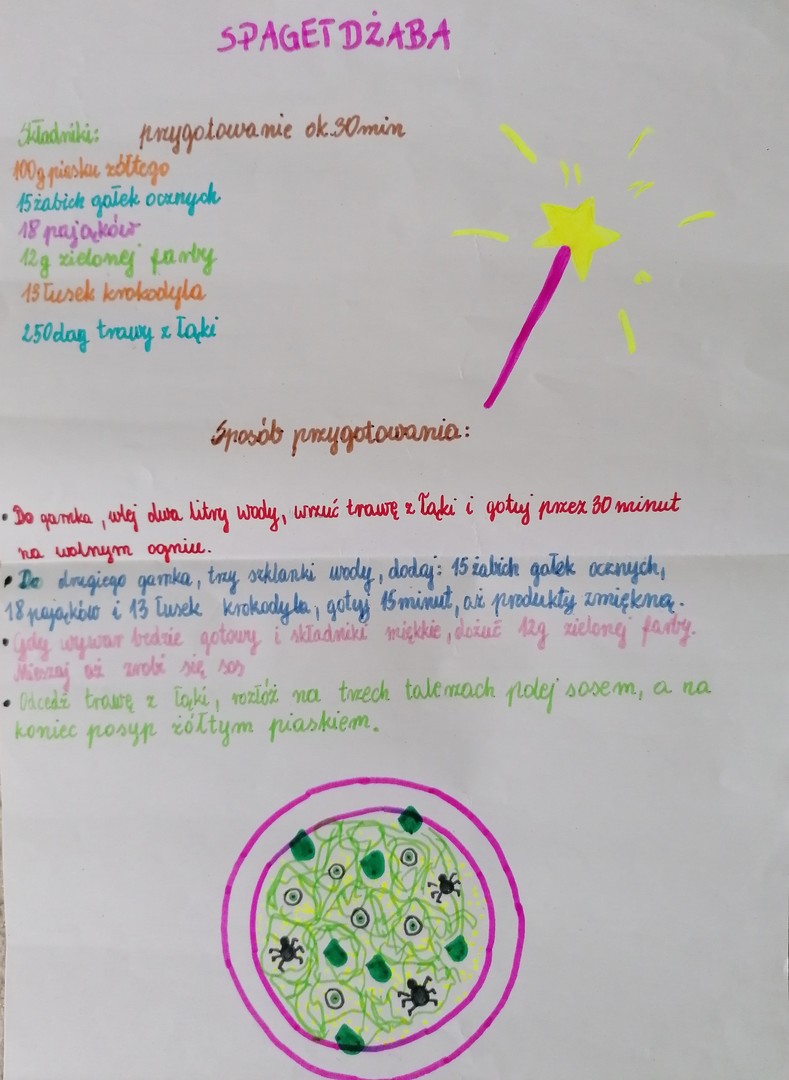 SPAGETDŻABA
Składniki: przygotowanie ok.30min
100g piasku żółtego
15 żabich gałek ocznych
18 pająków
12g zielonej farby
13 łusek krokodyla
250dag trawy z łąki
Sposób przygotowania:
• Do garnka, wlej dwa litry wody, wrzuć trawę z łąki i gotuj przez 30 minut
na wolnym ogniu.
• Do drugiego garnka, trzy szklanki wody, dodaj: 15 żabich gałek ocznych,
18 pająków i 13 łusek krokodyla, gotuj 15 minut, aż produkty zmiękną.
• Gdy wywar będzie gotowy i składniki miękkie, dorzuć 12g zielonej farby.
Mieszaj aż zrobi się sos
• Odcedź trawę z łąki, rozłóż na trzech talerzach polej sosem, a na
koniec posyp żółtym piaskiem.